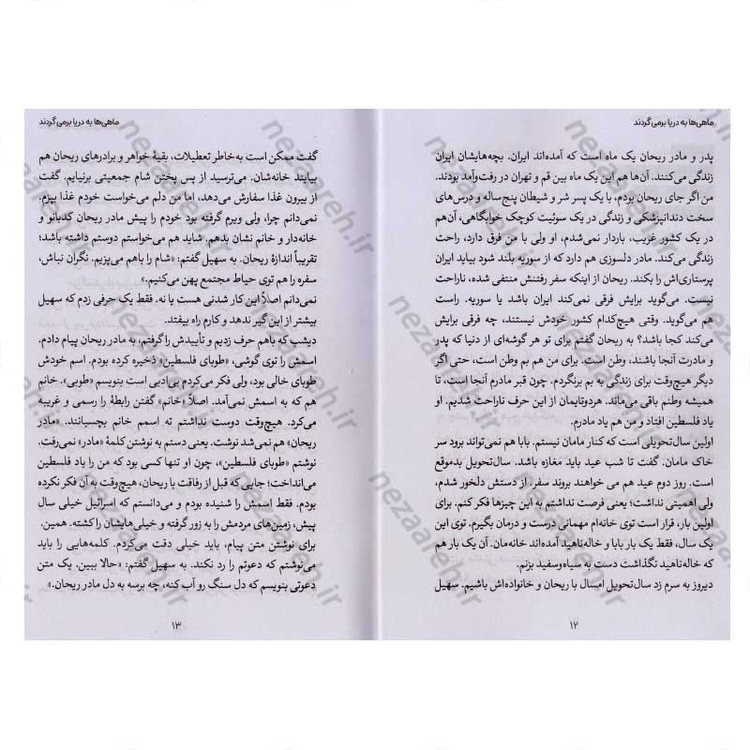 ماهی‌ها به دریا برمی‌گردند
پدر و مادر ریحان یک ماه است که آمده‌اند ایران. بچه‌هایشان ایران
زندگی می‌کنند. آن‌ها هم این یک ماه بین قم و تهران در رفت‌وآمد بودند.
من اگر جای ریحان بودم، با یک پسر شر و شیطان پنج‌ساله و درس‌های
سخت دندانپزشکی و زندگی در یک سوئیت کوچک خوابگاهی، آن‌هم
در یک کشور غریب، باردار نمی‌شدم، او ولی با من فرق دارد، راحت
زندگی می‌کند. مادر دلسوزی هم دارد که از سوریه بلند شود بیاید ایران
پرستاری‌اش را بکند. ریحان از اینکه سفر رفتنش منتفی شده، ناراحت
نیست. می‌گوید برایش فرقی نمی‌کند ایران باشد یا سوریه. راست
هم می‌گوید. وقتی هیچ‌کدام کشور خودش نیستند، چه فرقی برایش
می‌کند کجا باشد؟ به ریحان گفتم برای تو هر گوشه‌ای از دنیا که پدر
و مادرت آنجا باشند، وطن است. برای من هم بم وطن است، حتی اگر
دیگر هیچ‌وقت برای زندگی به بم برنگردم. چون قبر مادرم آنجا است، تا
همیشه وطنم باقی می‌ماند. هردوتایمان از این حرف ناراحت شدیم. او
یاد فلسطین افتاد و من هم یاد مادرم.
اولین سال‌تحویلی است که کنار مامان نیستم. بابا هم نمی‌تواند برود سر
خاک مامان. گفت تا شب عید باید مغازه باشد. سال‌تحویل بدموقع
است. روز دوم عید هم می‌خواهند بروند سفر. از دستش دلخور شدم،
ولی اهمیتی نداشت؛ یعنی فرصت نداشتم به این چیزها فکر کنم. برای
اولین بار، قرار است توی خانه‌ام مهمانی درست و درمان بگیرم. توی این
یک سال، فقط یک بار بابا و خاله‌ناهید آمده‌اند خانه‌مان. آن یک بار هم
که خاله‌ناهید نگذاشت دست به سیاه‌وسفید بزنم.
دیروز به سرم زد سال‌تحویل امسال با ریحان و خانواده‌اش باشیم. سهیل
۱۲
ماهی‌ها به دریا برمی‌گردند
گفت ممکن است به‌خاطر تعطیلات، بقیهٔ خواهر و برادرهای ریحان هم
بیایند خانه‌شان. می‌ترسید از پس پختن شام جمعیتی برنیایم. گفت
از بیرون غذا سفارش می‌دهد، اما من دلم می‌خواست خودم غذا بپزم.
نمی‌دانم چرا، ولی ویرم گرفته بود خودم را پیش مادر ریحان کدبانو و
خانه‌دار و خانم نشان بدهم. شاید هم می‌خواستم دوستم داشته باشد؛
تقریباً اندازهٔ ریحان. به سهیل گفتم: «شام را باهم می‌پزیم. نگران نباش،
سفره را هم توی حیاط مجتمع پهن می‌کنیم.»
نمی‌دانم اصلاً این کار شدنی هست یا نه. فقط یک حرفی زدم که سهیل
بیشتر از این گیر ندهد و کارم راه بیفتد.
دیشب که باهم حرف زدیم و تأییدش را گرفتم، به مادر ریحان پیام دادم.
اسمش را توی گوشی، «طوبای فلسطین» ذخیره کرده بودم. اسم خودش
طوبای خالی بود، ولی فکر می‌کردم بی‌ادبی است بنویسم «طوبی». خانم
هم که به اسمش نمی‌آمد. اصلاً «خانم» گفتن رابطهٔ را رسمی و غریبه
می‌کرد. هیچ‌وقت دوست نداشتم ته اسمم خانم بچسبانند. «مادر
ریحان» هم نمی‌شد نوشت. یعنی دستم به نوشتن کلمهٔ «مادر» نمی‌رفت.
نوشتم «طوبای فلسطین»، چون او تنها کسی بود که من را یاد فلسطین
می‌انداخت؛ جایی که قبل از رفاقت با ریحان، هیچ‌وقت به آن فکر نکرده
بودم. فقط اسمش را شنیده بودم و می‌دانستم که اسرائیل خیلی سال
پیش، زمین‌های مردمش را به زور گرفته و خیلی‌هایشان را کشته. همین.
برای نوشتن متن پیام، باید خیلی دقت می‌کردم. کلمه‌هایی را باید
می‌نوشتم که دعوتم را رد نکند. به سهیل گفتم: «حالا ببین. یک متن
دعوتی بنویسم که دل سنگ رو آب کنه، چه برسه به دل مادر ریحان.»
۱۳
nezaareh.ir